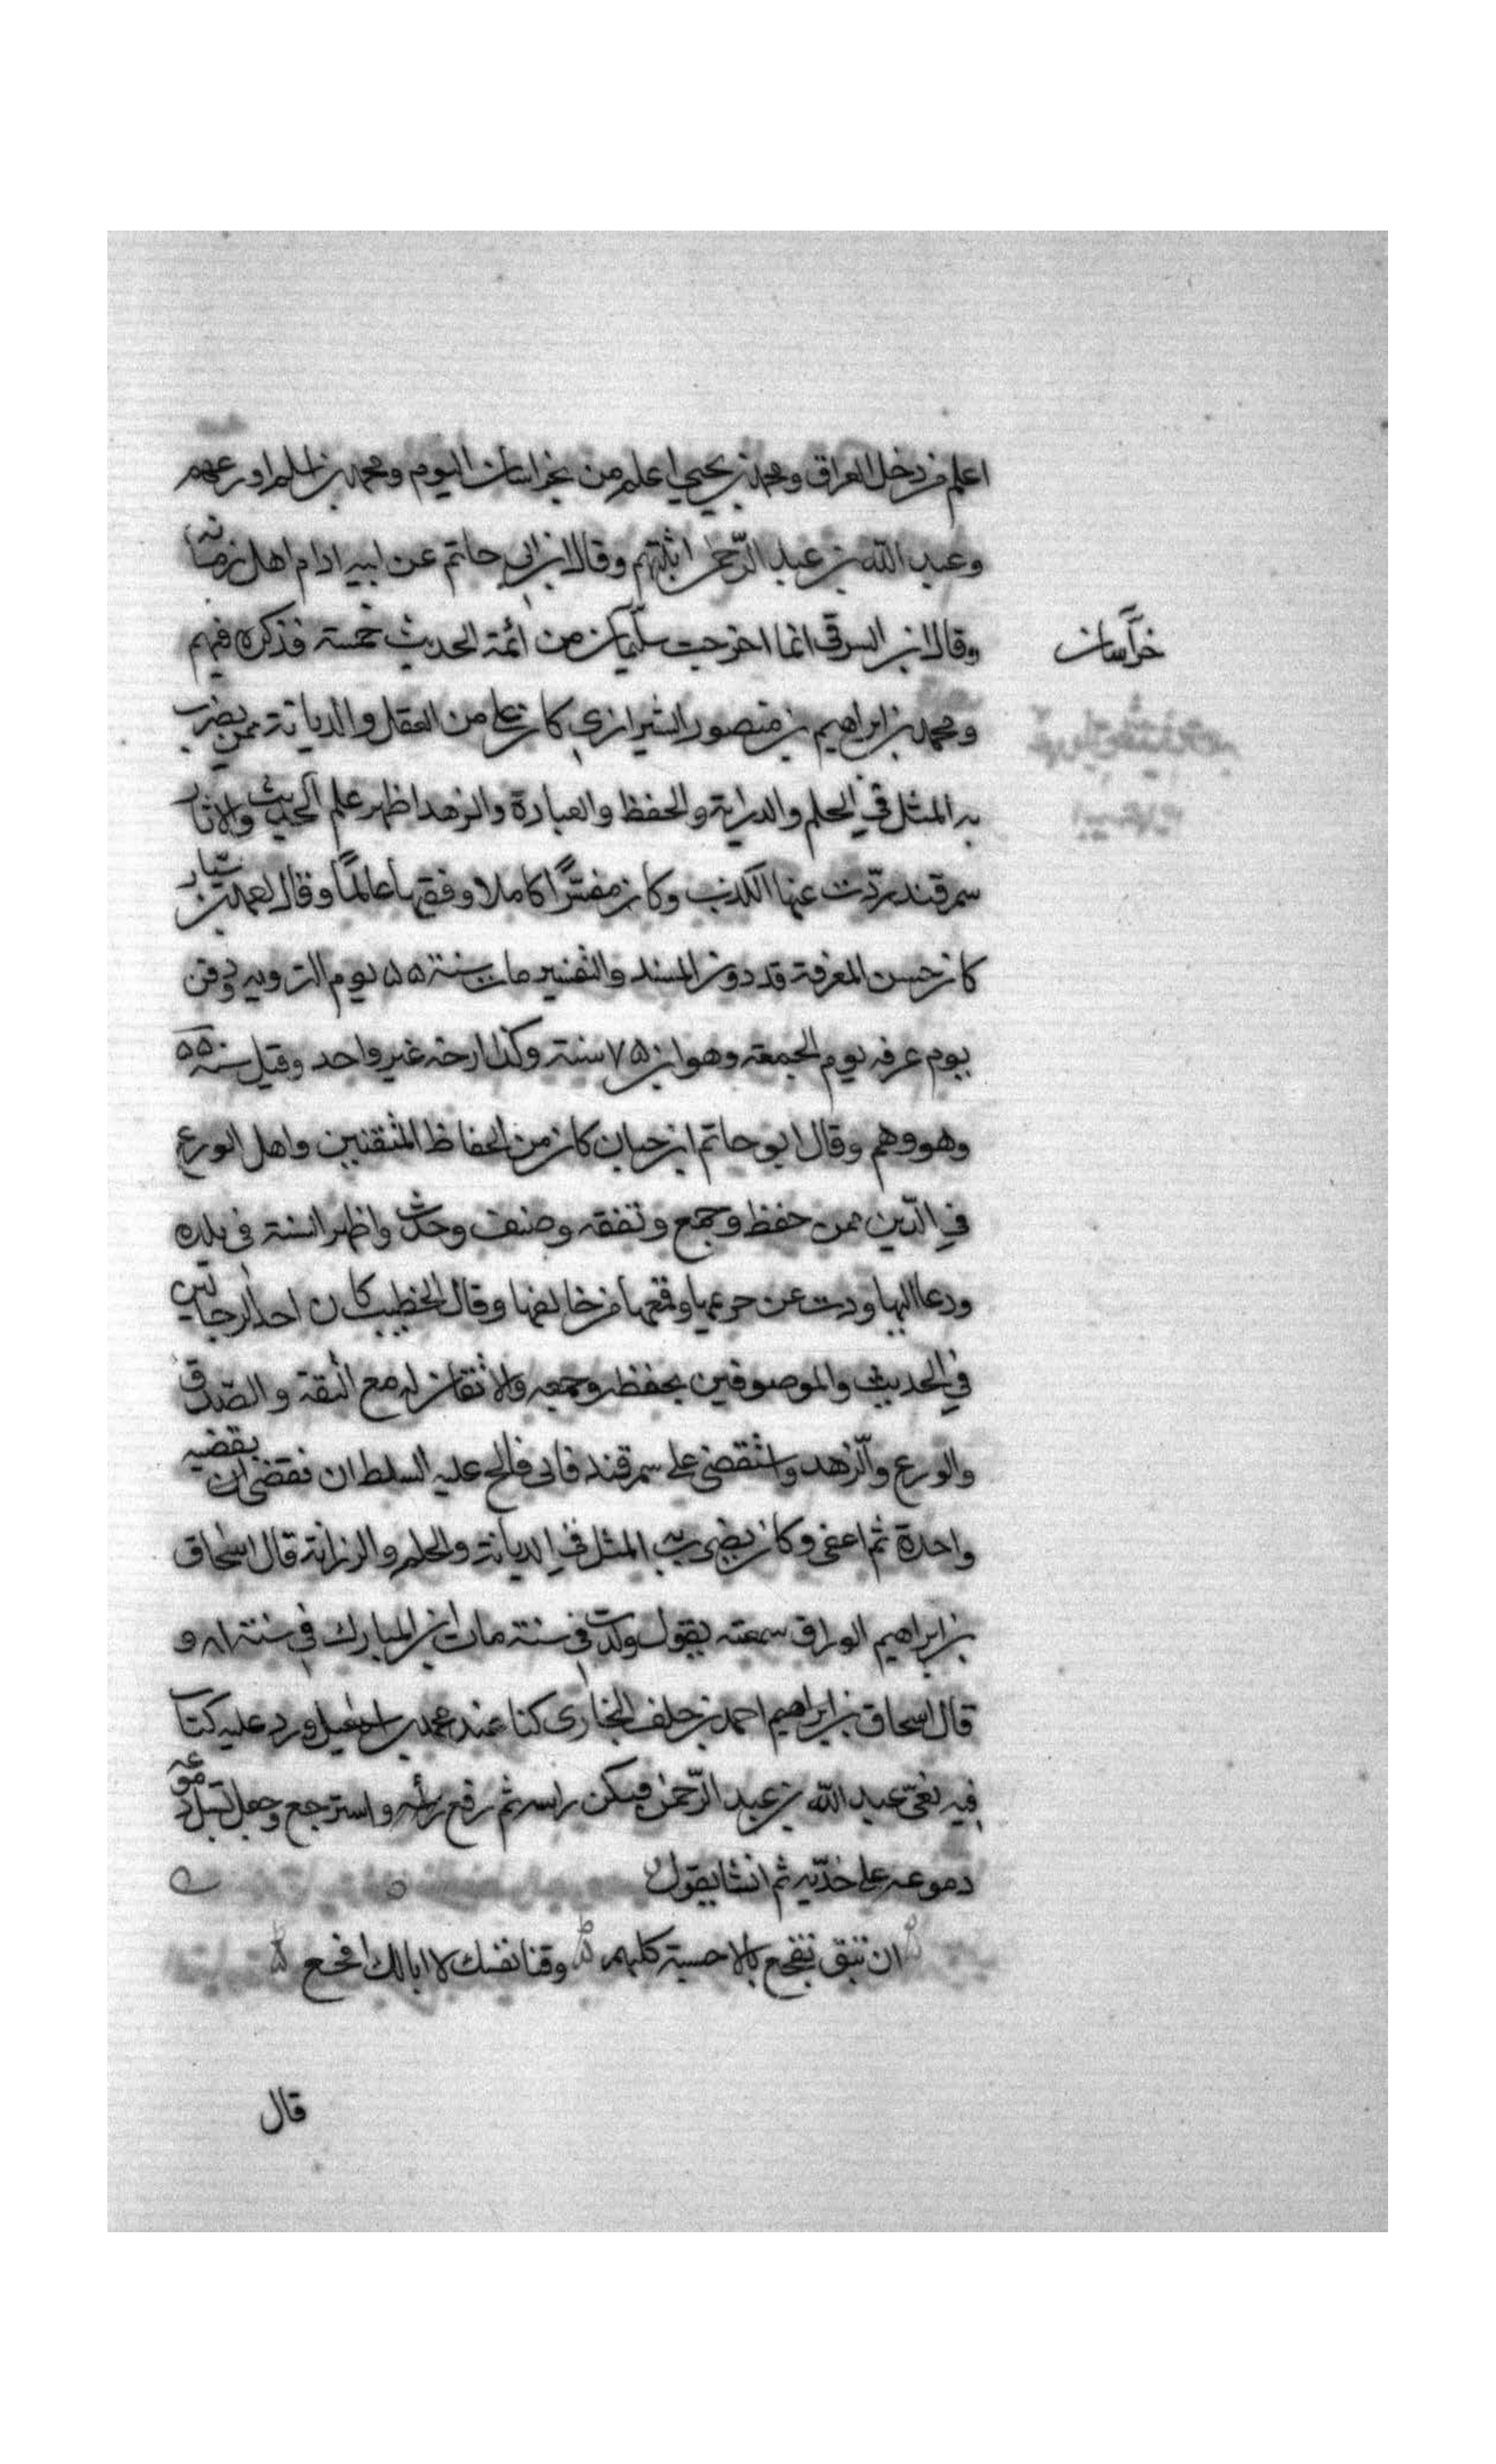 اعلم من دخل العراق ومحمد بن يحيي اعلم من بخراسان اليوم ومحمد بن اسلم اورعهم
وعبد الله بن عبد الرّحمن اثبتهم وقال ابن ابي حاتم عن ابيه امام اهل زمانه
وقال ابن الشرقي انما اخرجت خراسان من ائمة الحديث خمسة فذكره فيهم
خراسان
ومحمد بن ابراهيم بن منصور الشيرازي كان على من العقل والديانة ممن يضرب
به المثل في الحلم والدراية والحفظ والعبادة والزهد اظهر علم الحديث والاثار
سمرقند وذبّ عنها الكذب وكان مفسّرًا كاملا وفقيها عالمًا وقال احمد بن سيار
كان حسن المعرفة قد دون المسند والتفسير مات سنة ۵۵ يوم الترويه ودفن
يوم عرفه يوم الجمعه وهو ابن ۷۵ سنة وكذا ارخه غير واحد وقيل سنة ۵۰
وهو وهم وقال ابو حاتم ابن حبان كان من الحفاظ المتقنين واهل الورع
في الدّين ممن حفظ وجمع وتفقه وصنف وحدّث واظهر السنة في بلده
ودعا اليها وذب عن حريمها وقمع من خالفها وقال الخطيب كان احد الرحالين
في الحديث والموصوفين بحفظه وجمعه والاتقان له مع الثقة والصّدق
والورع والزّهد واستقضي على سمرقند فابى فالح عليه السلطان فقضى ان بقضيه
واحدة ثم اعفى وكان يضرب به المثل في الديانة والحلم والرزانة قال اسحاق
بن ابراهيم الوراق سمعته يقول ولدت في سنة مات ابن المبارك في سنة ۸۱ و
قال اسحاق بن ابراهيم احمد بن خلف البخاري كنا عند محمد بن اسمعيل فورد عليه كتاب
فيه نعي عبد الله بن عبد الرّحمن فنكس راسه ثم رفع راسه واسترجع وجعل تسيل دموعه
دموعه على خدّيه ثم انشا يقول
ان تبق تفجع بالاحبة كلهم وفنا نفسك لا ابا لك افجع
قال